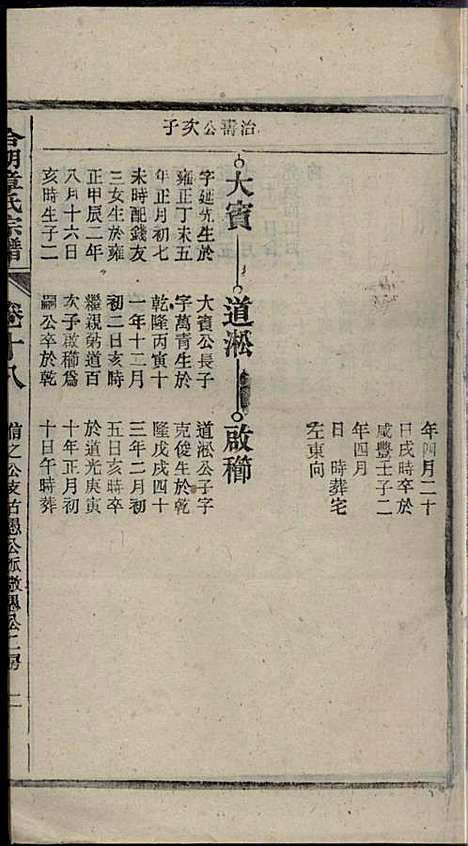 年四月二十
日戌時卒於
咸豐壬子二
年四月
日　時葬宅
左東向
治壽公次子
大賓
字延先生於
雍正丁未五
年正月初七
未時配錢友
三女生於雍
正甲辰二年
八月十六日
亥時生子二
道淞
大賓公長子
字萬青生於
乾隆丙寅十
一年十二月
初二日亥時
繼親勢道百
次子啟櫛爲
嗣公卒於乾
啟櫛
道淞公子字
克俊生於乾
隆戊戌四十
三年二月初
五日亥時卒
於道光庚寅
十年正月初
十日午時葬
合湖章氏宗譜
卷十八
信之公支古愚公派徵愚公二房
二